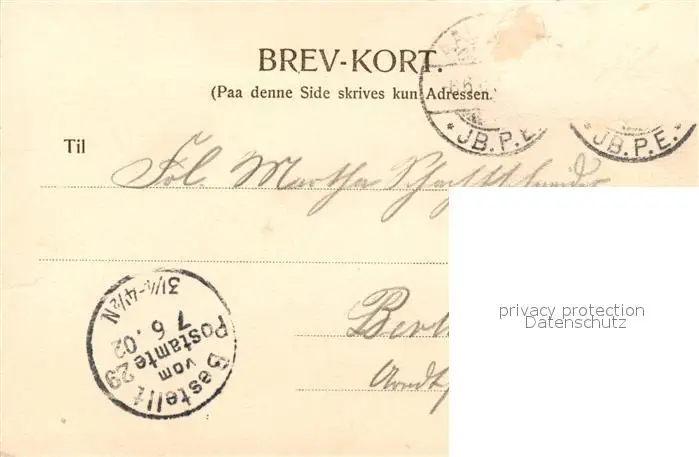 BREV-KORT.
(Paa denne Side skrives kun Adressen.)
JB.P.E.
JB.P.E.
Til
Frl. Martha
Berl
Arndt
Bestellt
vom
Postamte 29
7 6. 02
3¼-4½N
privacy protection
Datenschutz